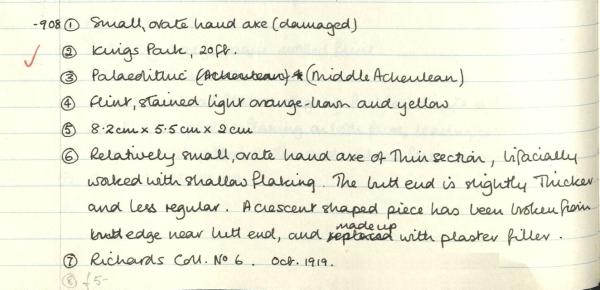 -908 ① Small, ovate hand axe (damaged)
② Kings Park, 20ft.
③ Palaeolithic (Acheulean) * (Middle Acheulean)
④ Flint, stained light orange-brown and yellow
⑤ 8.2cm x 5.5cm x 2cm
⑥ Relatively small, ovate hand axe of thin section, bifacially
worked with shallow flaking. The butt end is slightly thicker
and less regular. A crescent shaped piece has been broken from
butt edge near butt end, and replaced made up with plaster filler.
⑦ Richards Coll. No 6. Oct. 1919.
⑧ £5-